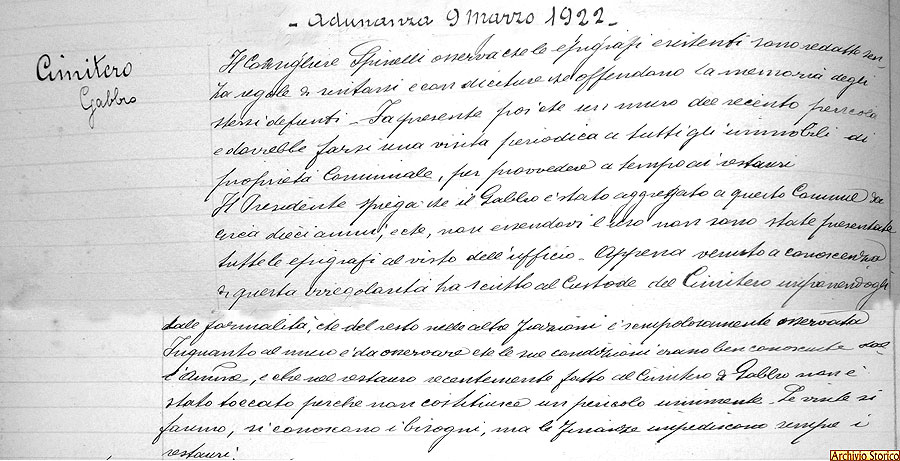 - Adunanza 9 marzo 1922 -
Cimitero
Gabbro
Il Consigliere Spinelli osserva che le epigrafi esistenti sono redatte sen
za regole di sintassi e con diciture che offendono la memoria degli
stessi defunti - Fa presente poi che un muro del recinto pericola
e dovrebbe farsi una visita periodica a tutti gli immobili di
proprietà Comunale, per provvedere a tempo ai restauri
Il Presidente spiega che il Gabbro è stato aggregato a questo Comune da
circa dieci anni, e che, non essendovi l'uso non sono state presentate
tutte le epigrafi al visto dell'ufficio - Appena venuto a conoscenza
di questa irregolarità ha scritto al Custode del Cimitero imponendogli
tale formalità, che del resto nelle altre frazioni è scrupolosamente osservata
Inquanto al muro è da osservare che le sue condizioni erano ben conosciute dal
l'Amm.ne, e che nel restauro recentemente fatto al Cimitero di Gabbro non è
stato toccato perchè non costituisce un pericolo imminente. Le visite si
fanno, si conoscono i bisogni, ma le finanze impediscono sempre i
restauri.
Archivio Storico